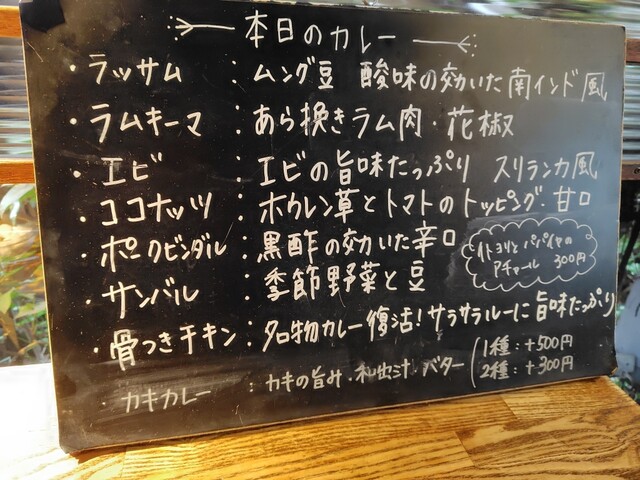 本日のカレー
・ラッサム : ムング豆 酸味の効いた南インド風
・ラムキーマ : あら挽きラム肉・花椒
・エビ : エビの旨味たっぷり スリランカ風
・ココナッツ : ホウレン草とトマトのトッピング・甘口
・ポークビンダル : 黒酢の効いた辛口
イトヨリとパパイヤの
アチャール 300円
・サンバル : 季節野菜と豆
・骨つきチキン : 名物カレー復活!サラサラルーに旨味たっぷり
・カキカレー : カキの旨み・和出汁・バター
1種:+500円
2種:+300円